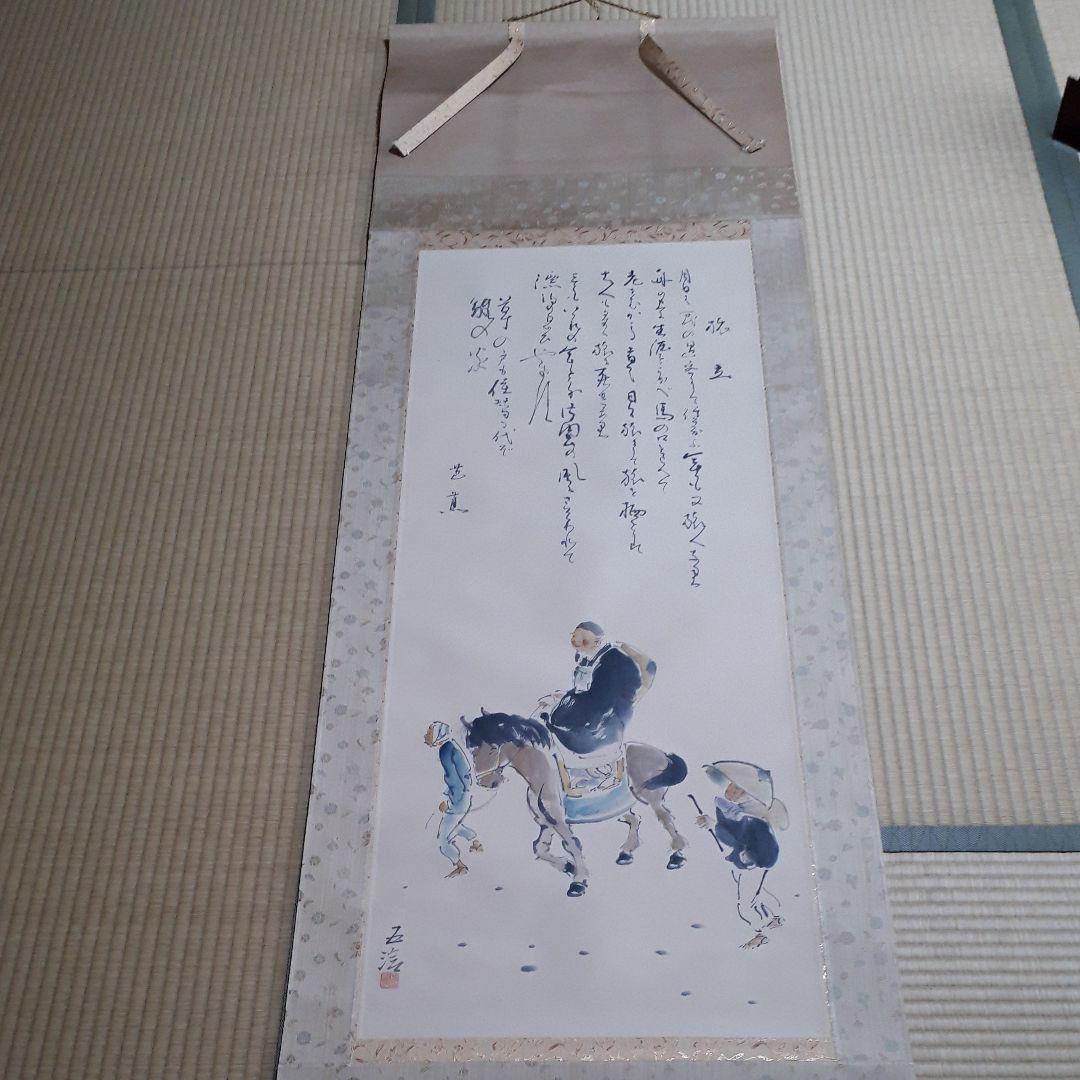 旅立
月日は百代の過客にして行かふ年も又旅人也
舟の上に生涯をうかべ馬の口とらへて
老をむかふる者は日々旅にして旅を栖とす
古人も多く旅に死せるあり
予もいづれの年よりか片雲の風にさそはれて
漂泊の思ひやまず
草の戸も住替る代ぞ
雛の家
芭蕉
五